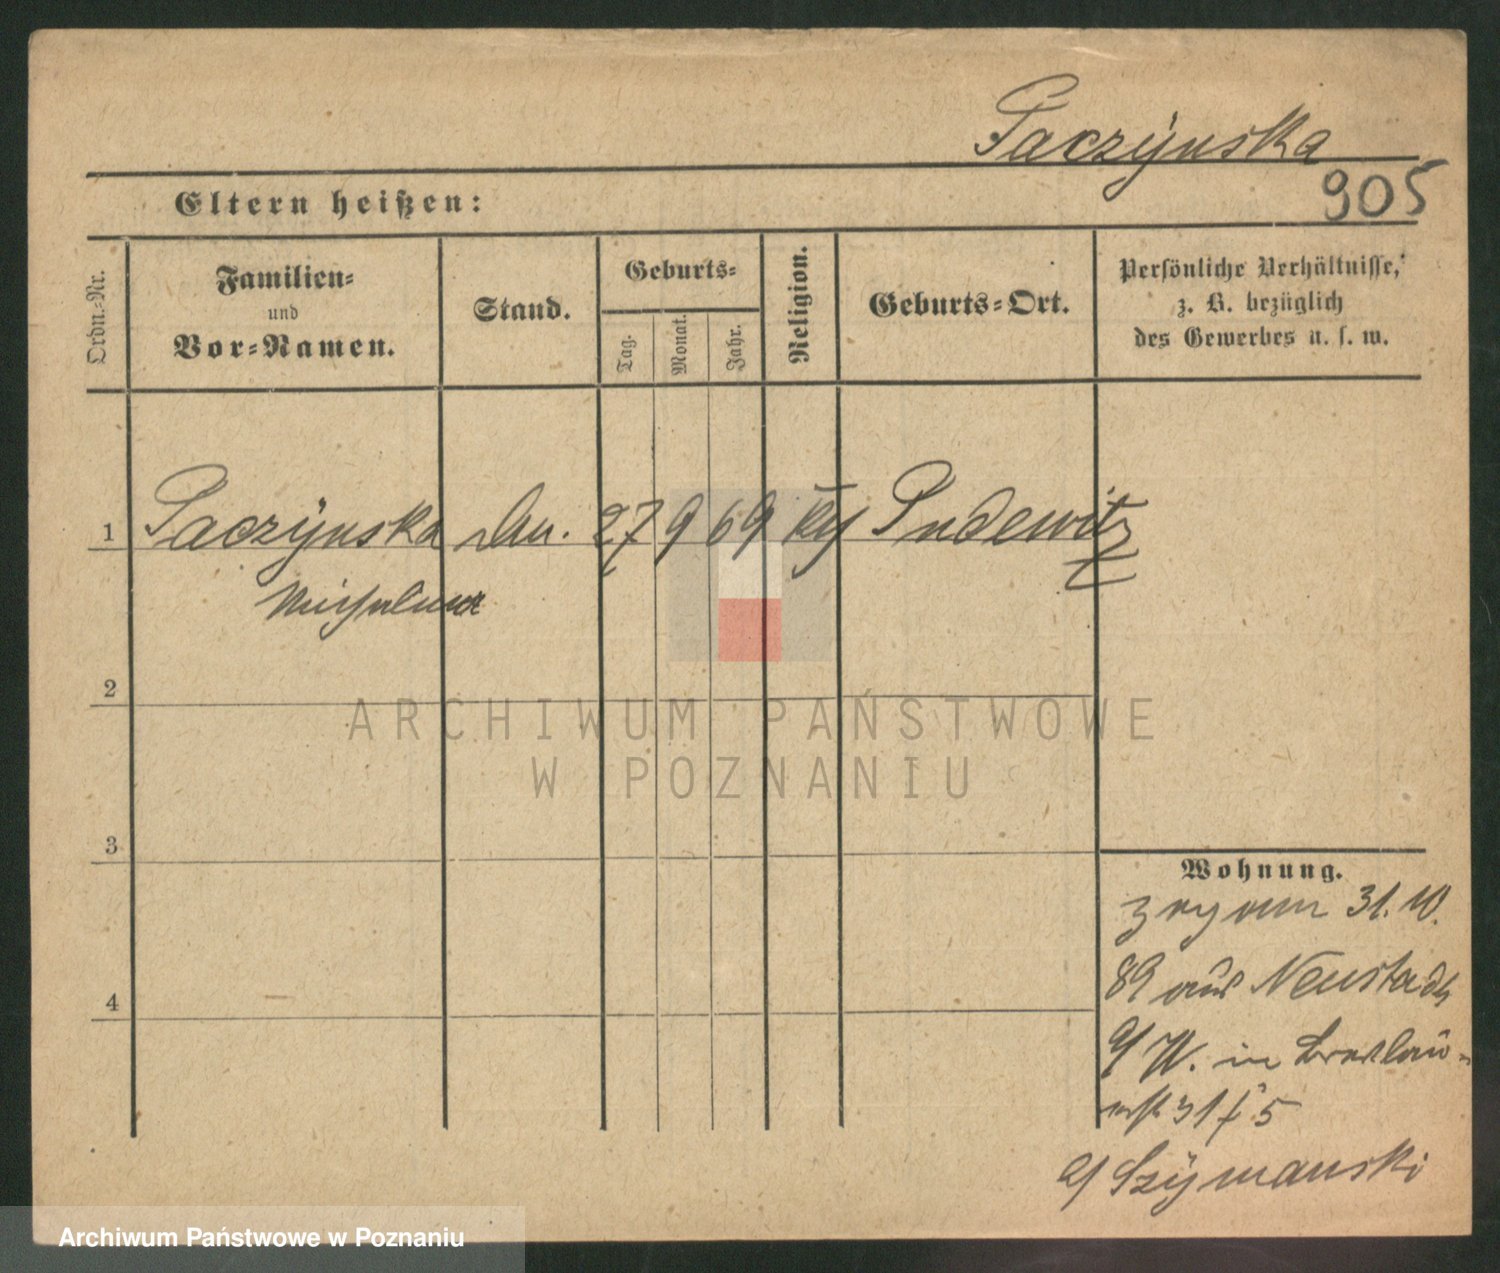 Paczÿnska
905
Eltern heißen:
Ordn.-Nr.
Familien-
und
Vor-Namen.
Stand.
Geburts-
Tag.
Monat.
Jahr.
Religion.
Geburts-Ort.
Persönliche Verhältnisse,
z. B. bezüglich
des Gewerbes u. s. w.
1
Paczÿnska
27 9 69
Pudewitz
2
ARCHIWUM PAŃSTWOWE
W POZNANIU
3
Wohnung.
31. 10.
89 aus Neustadt
a/W. in Breslau-
31
5
Szÿmanski
4
Archiwum Państwowe w Poznaniu